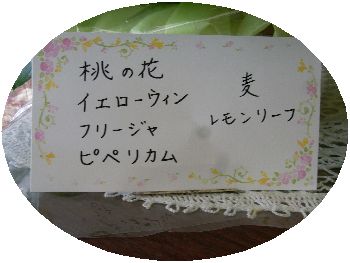 桃の花
イエローウィン
フリージャ
ピペリカム
麦
レモンリーフ